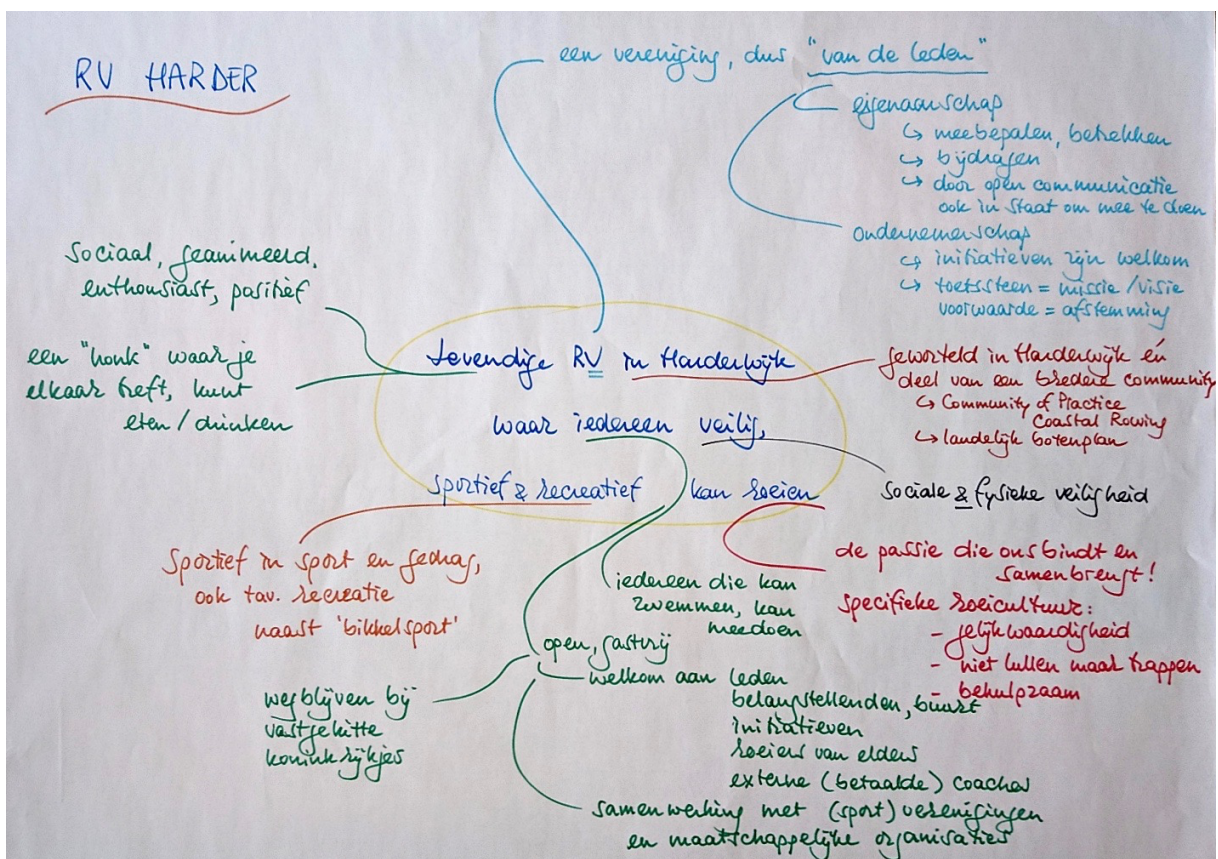 RV HARDER
een vereniging, dus "van de leden"
eigenaarschap
↳ meebepalen, betrekken
↳ bijdragen
↳ door open communicatie
ook in staat om mee te doen
ondernemerschap
↳ initiatieven zijn welkom
↳ toetssteen = missie / visie
voorwaarde = afstemming
sociaal, geanimeerd,
enthousiast, positief
een "honk" waar je
elkaar treft, kunt
eten / drinken
Levendige RV in Harderwijk
waar iedereen veilig,
sportief & recreatief kan roeien
geworteld in Harderwijk én
deel van een bredere community
↳ Community of Practice
Coastal Rowing
↳ landelijk botenplan
sociale & fysieke veiligheid
de passie die ons bindt en
samenbrengt!
specifieke roeicultuur:
- gelijkwaardigheid
- niet lullen maar trappen
- behulpzaam
sportief in sport en gedrag,
ook tav. recreatie
naast 'bikkelsport'
iedereen die kan
zwemmen, kan
meedoen
open, gastvrij
welkom aan leden
belangstellenden, buurt
initiatieven
roeiers van elders
externe (betaalde) coaches
wegblijven bij
vastgekitte
koninkrijkjes
samenwerking met (sport)verenigingen
en maatschappelijke organisaties